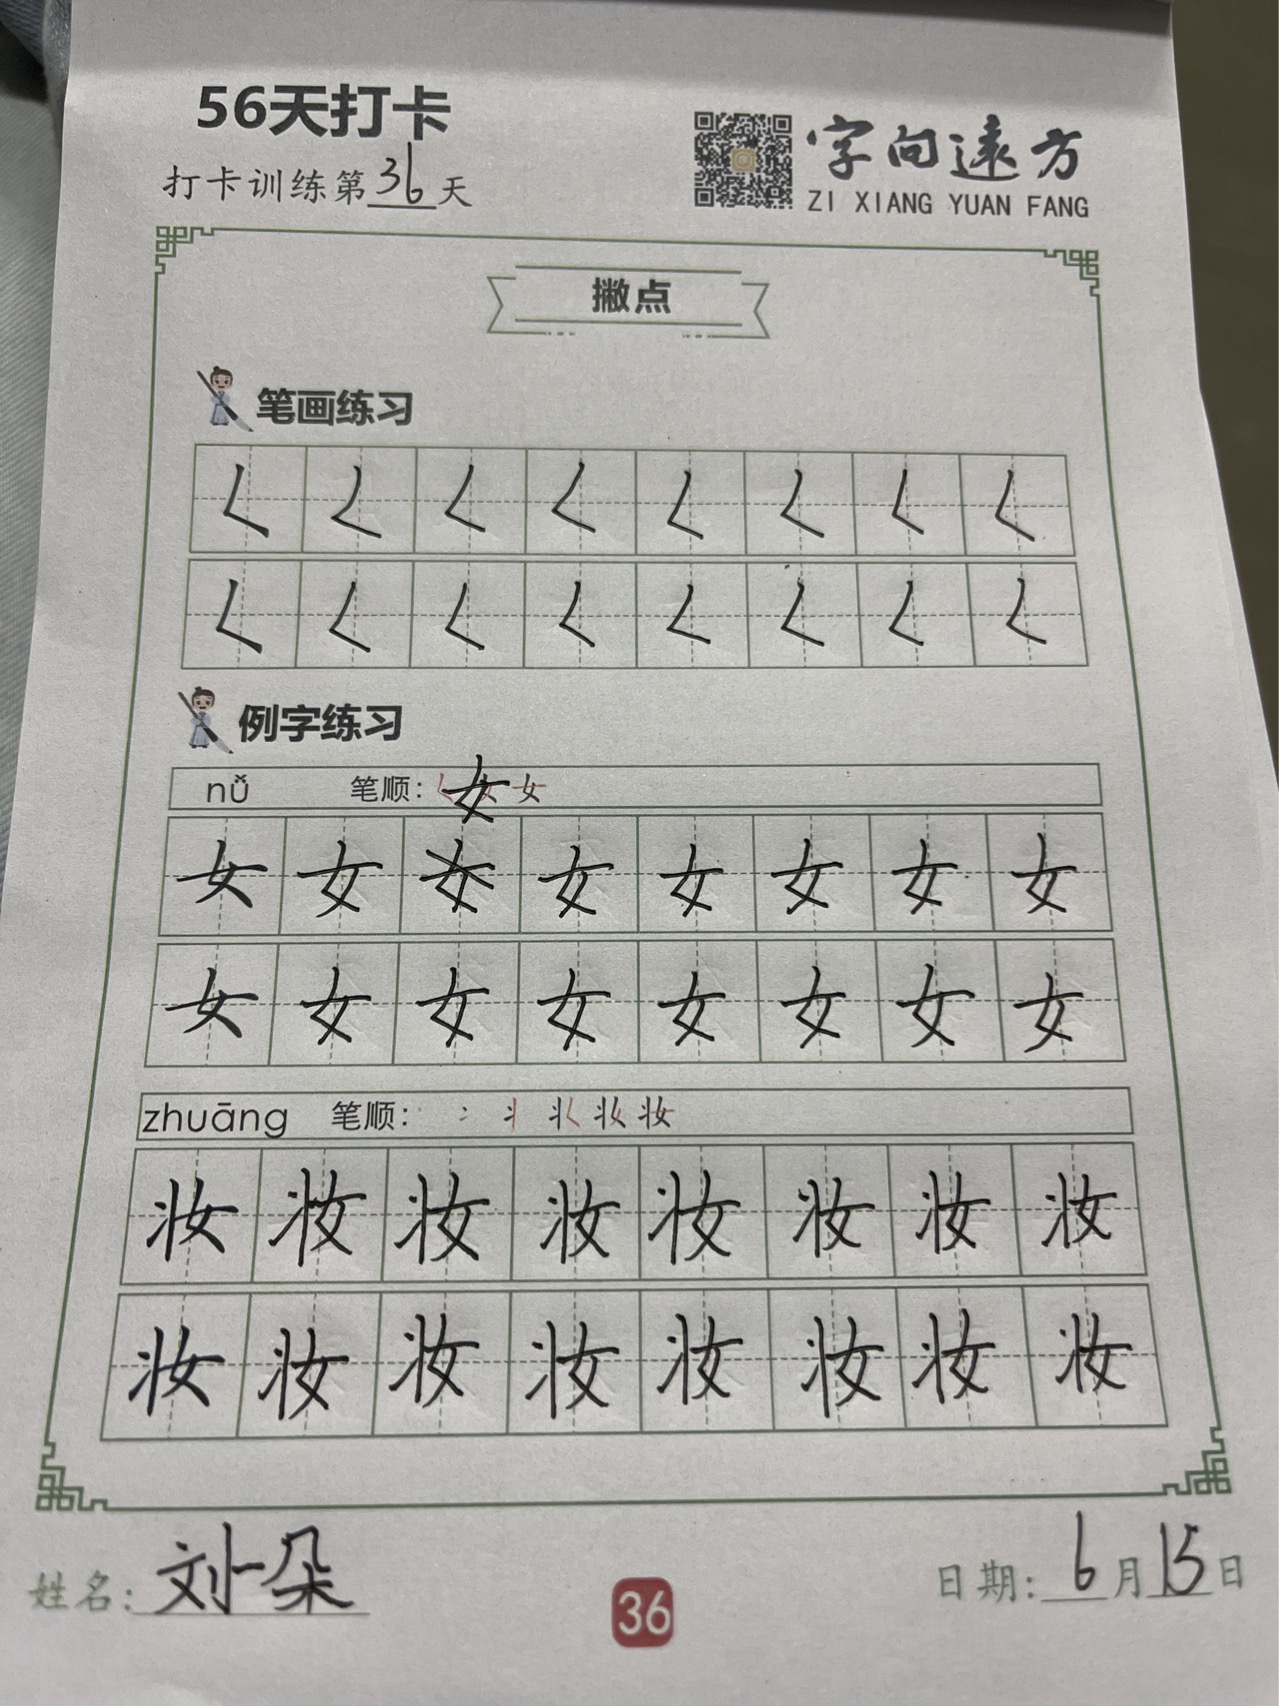 56天打卡
打卡训练第36天
字向遠方
ZI XIANG YUAN FANG
撇点
笔画练习
𡿨 𡿨 𡿨 𡿨 𡿨 𡿨 𡿨 𡿨
𡿨 𡿨 𡿨 𡿨 𡿨 𡿨 𡿨 𡿨
例字练习
nǚ 笔顺: 女 女
女 女 女 女 女 女 女 女
女 女 女 女 女 女 女 女
zhuāng 笔顺: 丶 冫 丬 妆 妆 妆
妆 妆 妆 妆 妆 妆 妆 妆
妆 妆 妆 妆 妆 妆 妆 妆
姓名: 刘一朵
36
日期: 6月15日